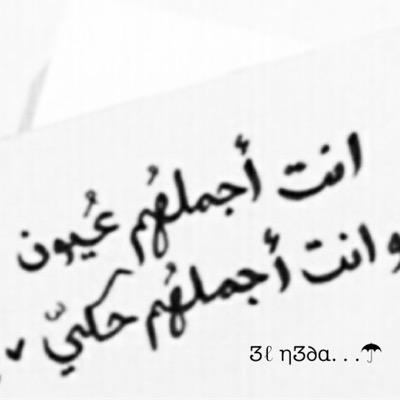 انت أجملهُم عُيون
وانت أجملهُم حكيّ ♥
3ℓ η3∂α...☂